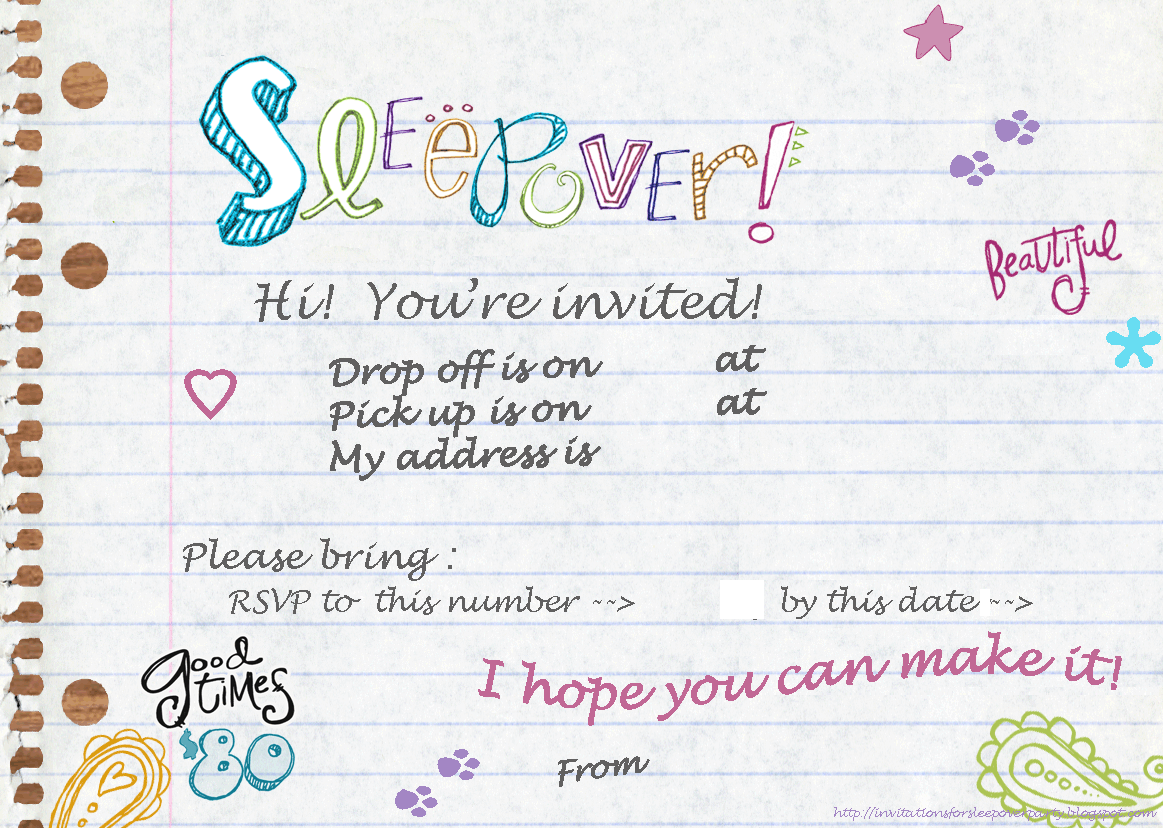 Sleepover!
Beautiful
Hi! You're invited!
Drop off is on at
Pick up is on at
My address is
Please bring :
RSVP to this number ~~> by this date ~~>
I hope you can make it!
good
times
'80
From
http://invitationsforsleepoverparty.blogspot.com